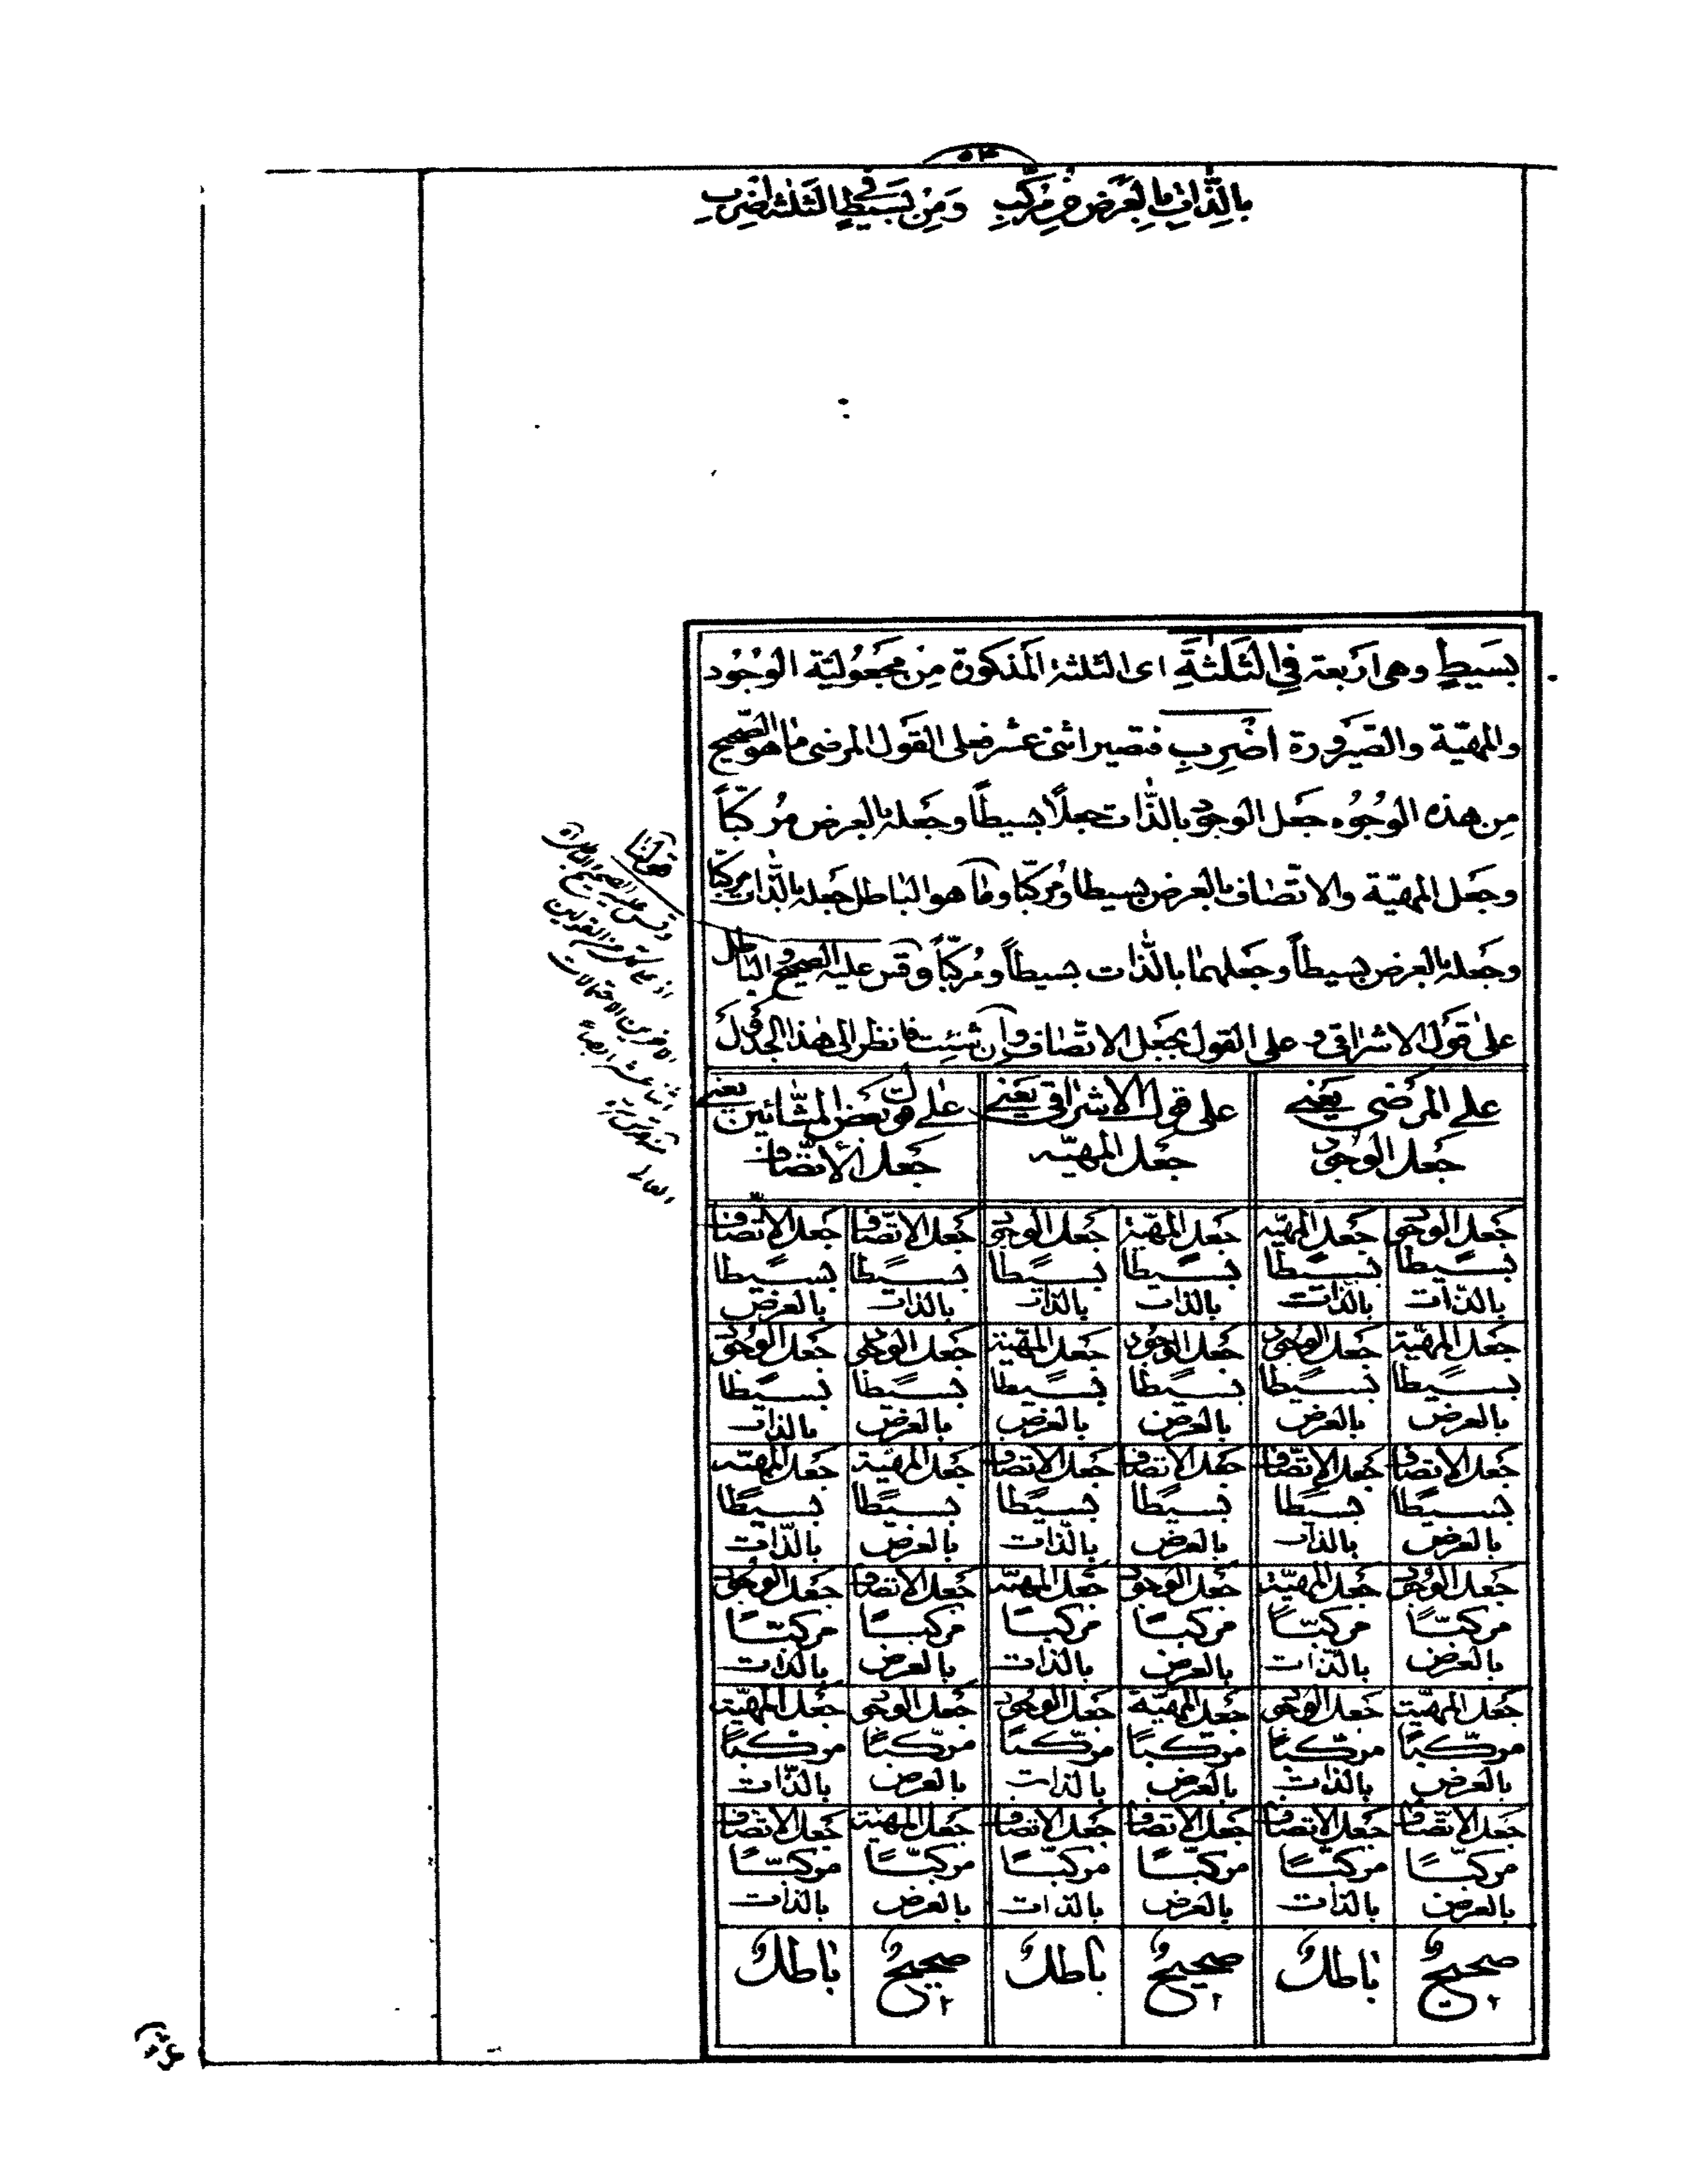 ٥٣
بِالذّاتِ بِالعَرَضِ مِن مُرَكَّبِ وَمِنْ بَسيطٍ في الثَّلٰثَةِ اَضْرِبِ
بَسيطٍ وهى اربعة فِي الثَلٰثَةِ اى الثلثة المذكورة مِن مجعُوليّة الوُجُود
والمهيّة والصّيرورة اضْرِبِ فتصير اثنى عشر فعلى القول المرضى ما هو الصّحيح
مِن هذه الوُجُوه جَعل الوجود بالذّات جعلاً بسيطاً وجَعله بالعرض مُركبّاً
وجَعل المهيّة والاتّصاف بالعرض بسيطا ومُركبّا وما هو الباطل جَعله بالذّات مركبّا
وجَعله بالعرض بسيطاً وجَعلهما بالذّات بسيطاً ومُركبّاً وقس عليه الصحيح والباطل
على قول الاشراقى و على القول بجَعل الاتّصاف وان شئت فانظر الى هذا الجدول
على المرضى يَعنى جَعل الوجود
على قول الاشراقى يَعنى جَعل المهيّه
على قول بعض المشّائين يعنى جَعل الاتّصاف
جَعل الوجود بسيطا بالذّات
جَعل المهيّه بسيطا بالذّات
جَعل المهيّة بسيطا بالذات
جَعل الوجود بسيطا بالذات
جَعل الاتّصاف بسيطا بالذات
جَعل الاتّصاف بسيطا بالعرض
جَعل المهيّة بسيطا بالعرض
جَعل الوجود بسيطا بالعرض
جَعل الوجود بسيطا بالعرض
جَعل المهيّة بسيطا بالعرض
جَعل الوجود بسيطا بالعرض
جَعل الوجود بسيطا بالذات
جَعل الاتصاف بسيطا بالعرض
جَعل الاتّصاف بسيطا بالذات
جَعل الاتصاف بسيطا بالعرض
جَعل الاتصاف بسيطا بالذّات
جَعل المهيّة بسيطا بالعرض
جَعل المهيّه بسيطا بالذّات
جَعل الوجود مركبّا بالعرض
جَعل المهيّة مركبّا بالذّات
جَعل الوجود مركبا بالعرض
جَعل المهيّه مركبا بالذات
جَعل الاتصاف مركبا بالعرض
جَعل الوجود مركبّا بالذات
جَعل المهيّة مركّبا بالعرض
جَعل الوجود مركّبا بالذات
جَعل المهيّة مركّبا بالعرض
جَعل الوجود مركّبا بالذات
جَعل الوجود مركّبا بالعرض
جَعل المهيّة مركّبا بالذّات
جَعل الاتّصاف مركبّا بالعرض
جَعل الاتصاف مركبّا بالذات
جَعل الاتصاف مركبّا بالعرض
جَعل الاتصاف مركبّا بالذات
جَعل المهيّة مركبّا بالعرض
جَعل الاتصاف مركبّا بالذات
صحيحٌ
باطلٌ
صحيحٌ
باطلٌ
صحيحٌ
باطلٌ
قولنا
وقس عليه الصحيح والباطل
اذ على كل من القولين
الاخرين الاحتمالات
اثنا عشر ايضاً